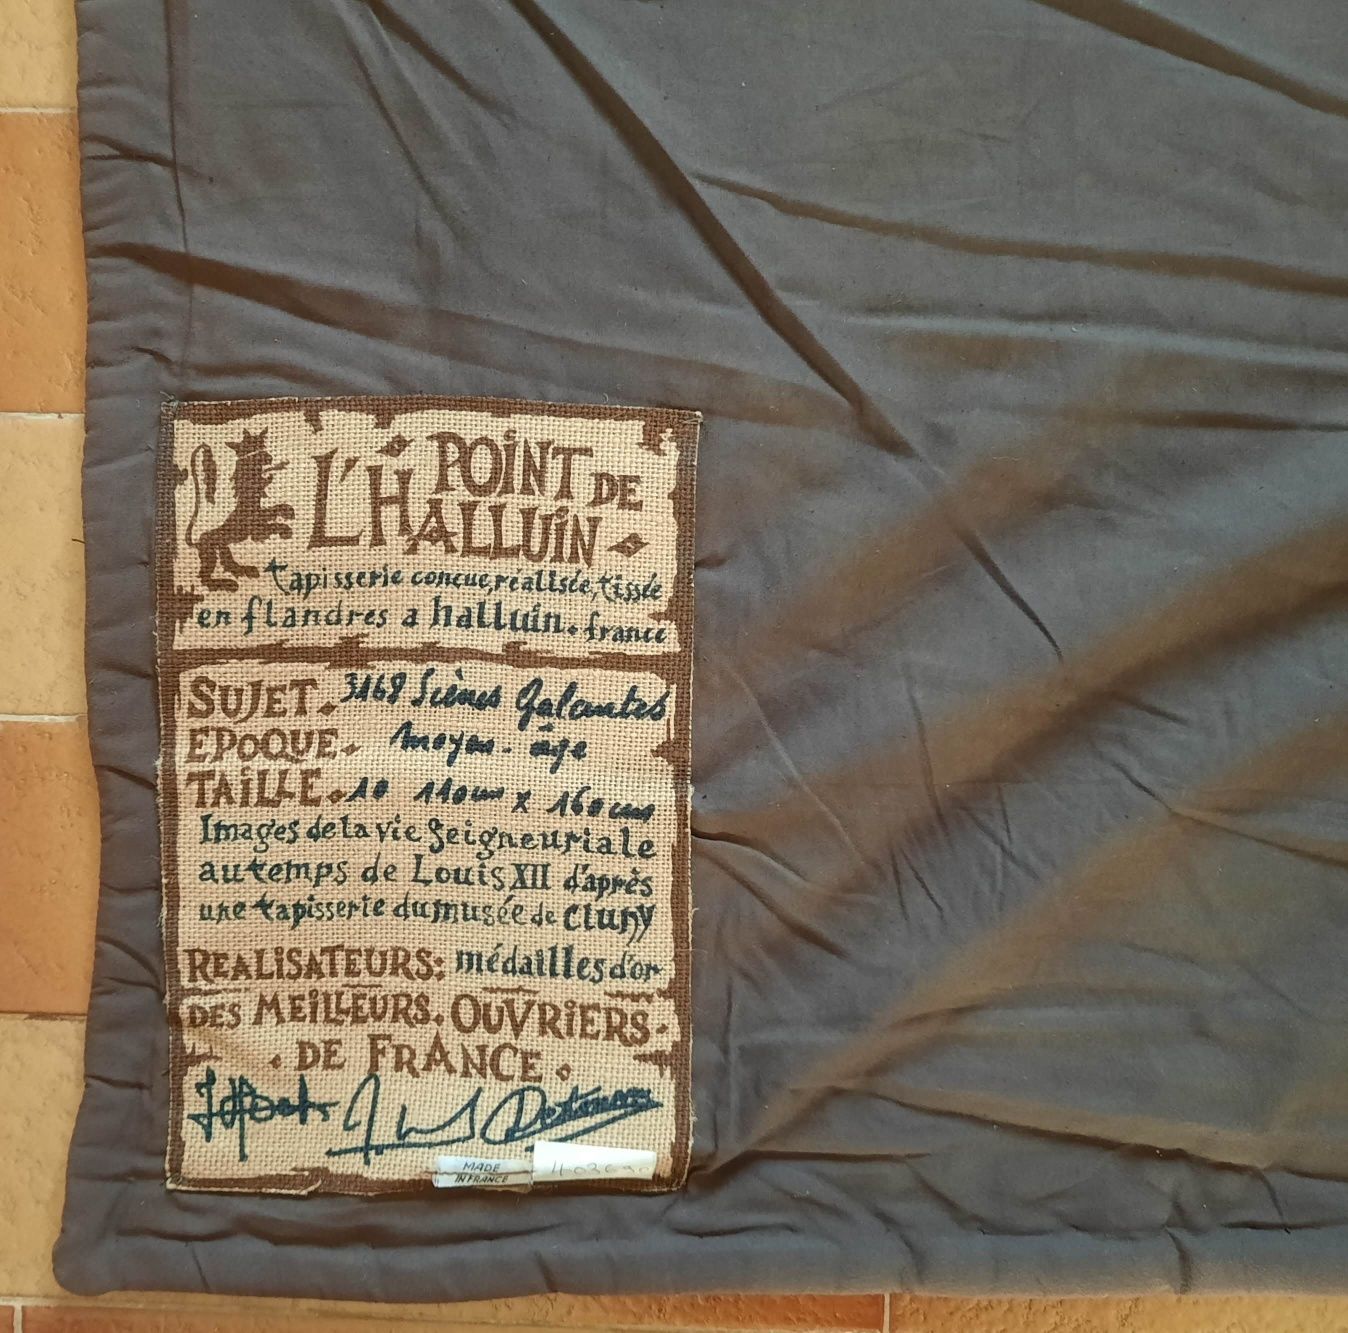 POINT DE
L'HALLUIN
tapisserie conçue, réalisée, tissée
en flandres a halluin. france
SUJET. 3168 Scènes Galantes
EPOQUE. moyen-âge
TAILLE. 10 110cm x 160cm
Images de la vie Seigneuriale
au temps de Louis XII d'après
une tapisserie du musée de Cluny
REALISATEURS: médailles d'or
DES MEILLEURS. OUVRIERS.
. DE FRANCE .
MADE
IN FRANCE